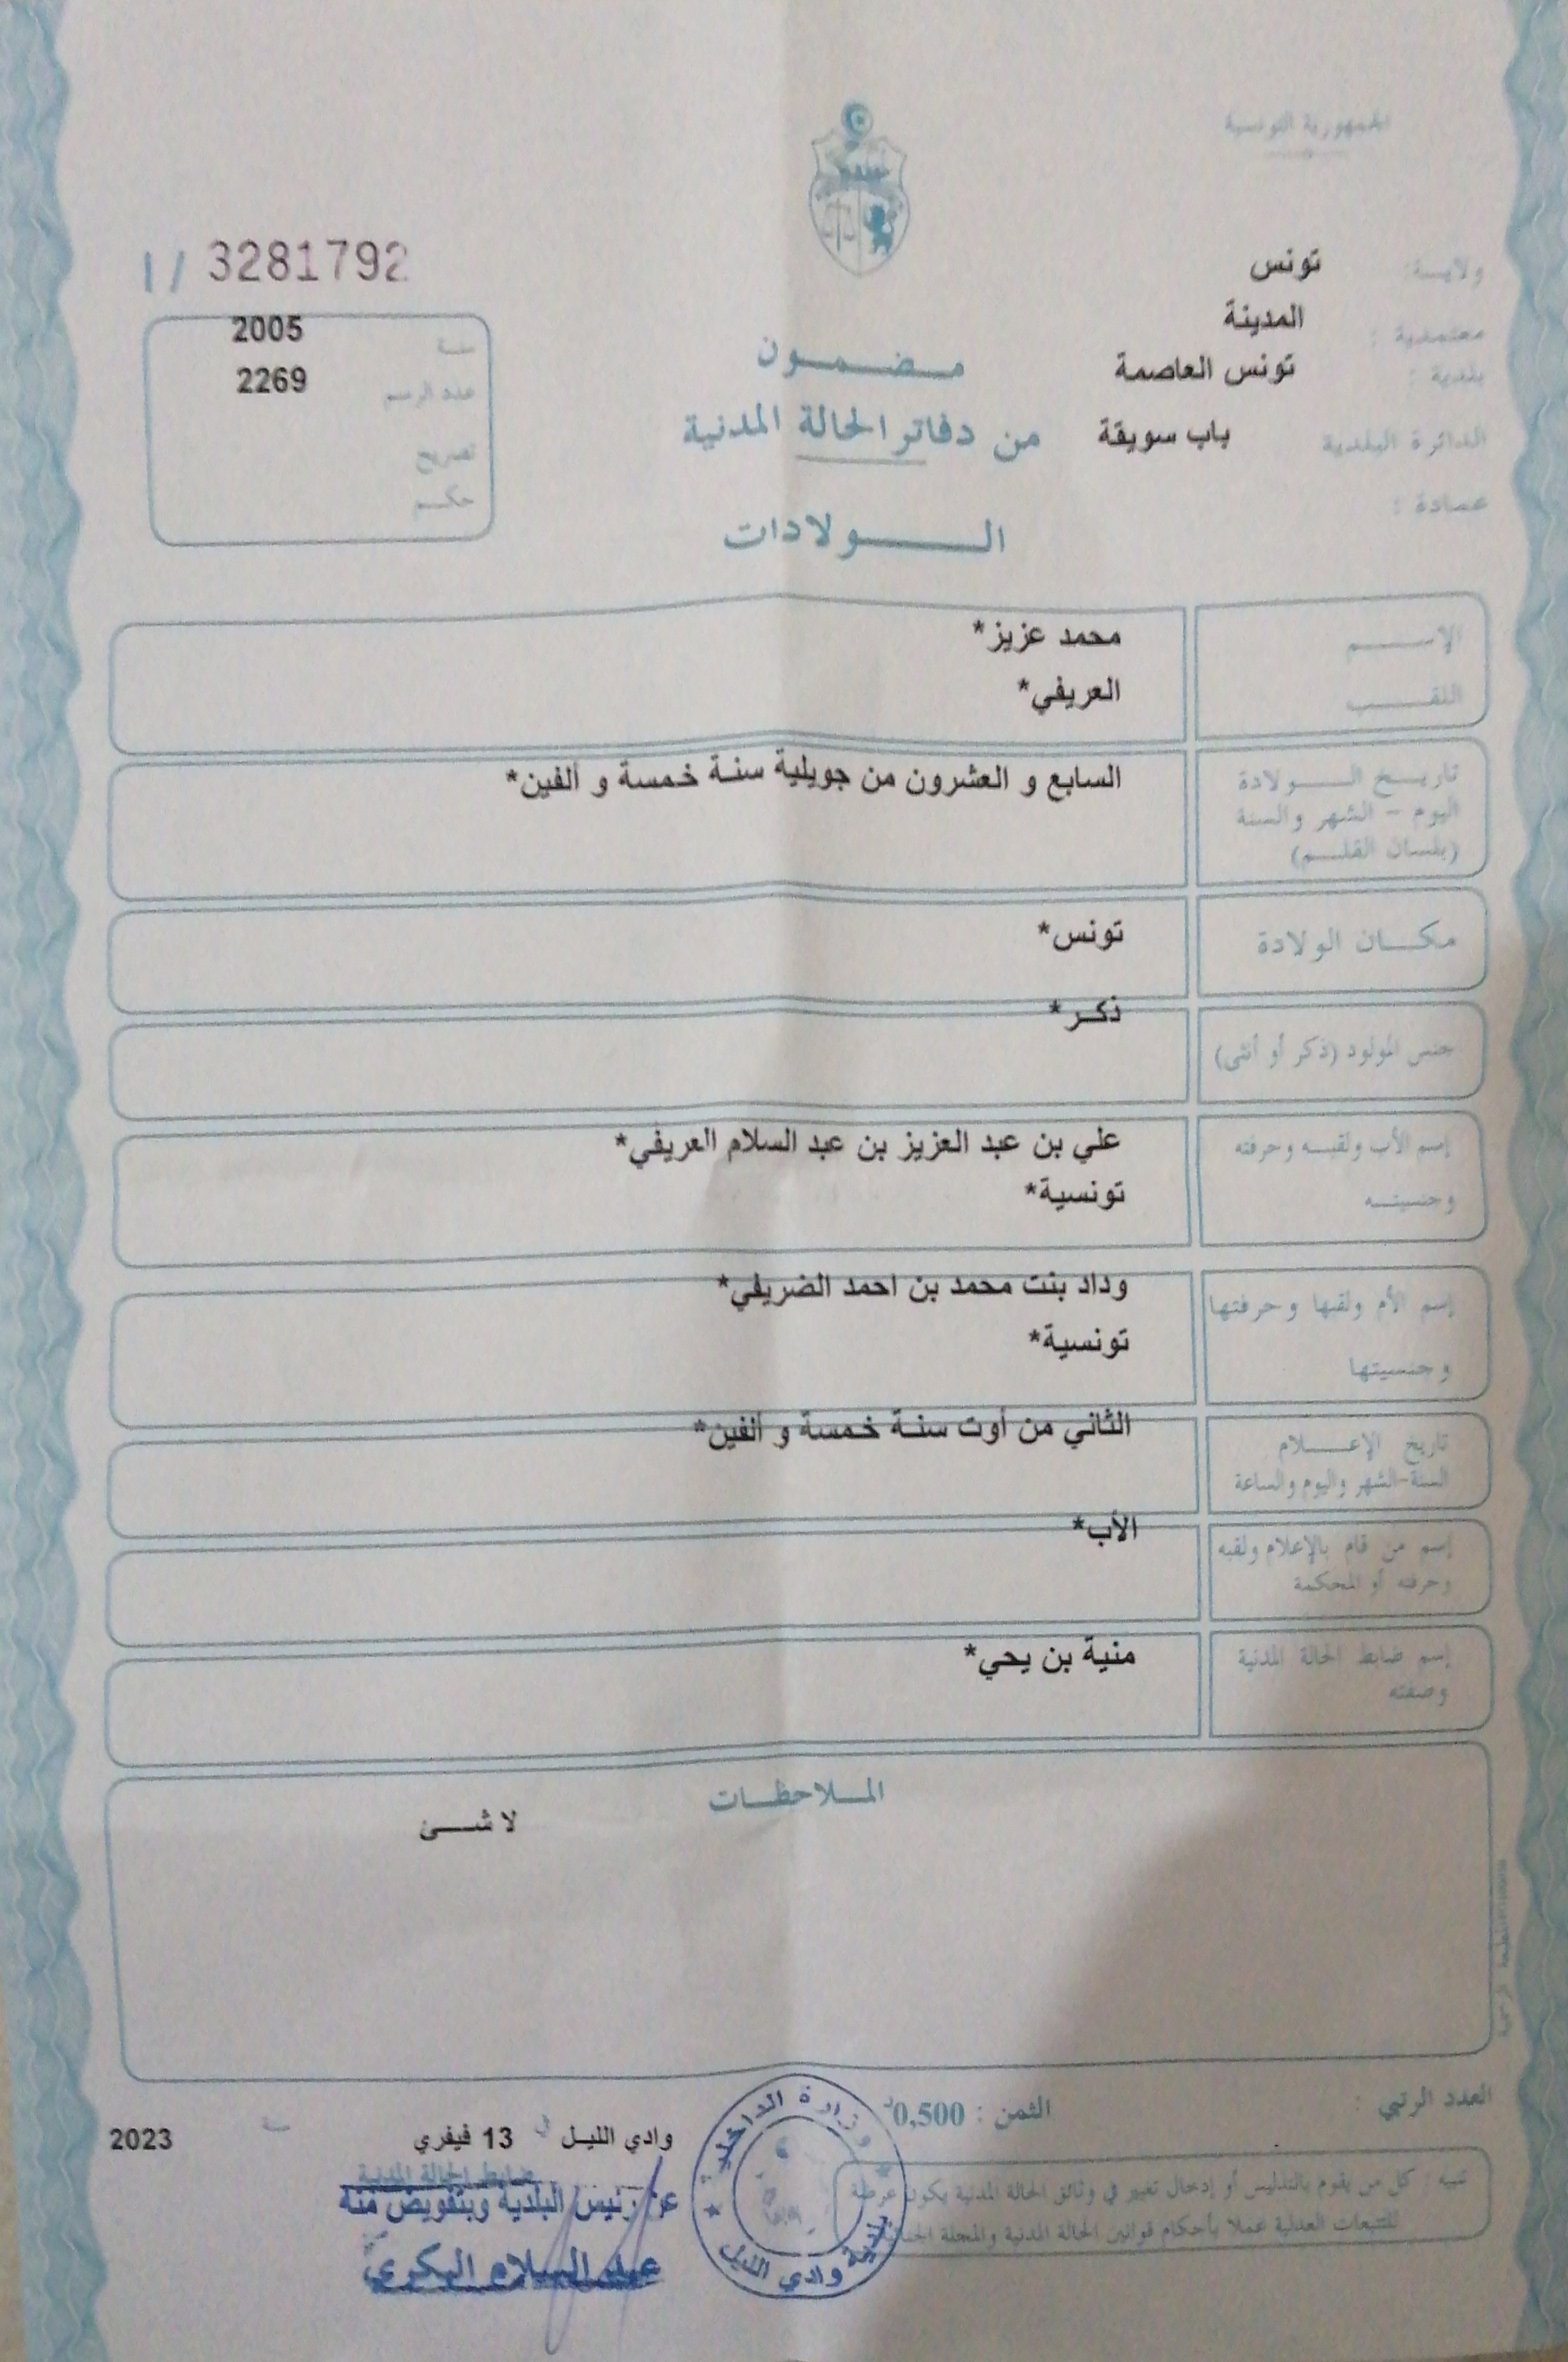 الجمهورية التونسية
ولاية: تونس
معتمدية : المدينة
بلدية : تونس العاصمة
الدائرة البلدية باب سويقة
عمادة :
مضمون
من دفاتر الحالة المدنية
الولادات
1/ 3281792
سنة 2005
عدد الرسم 2269
تصريح
حكم
الإسم محمد عزيز*
اللقب العريفي*
تاريخ الولادة السابع و العشرون من جويلية سنة خمسة و ألفين*
اليوم - الشهر والسنة
(بلسان القلم)
مكان الولادة تونس*
جنس المولود (ذكر أو أنثى) ذكر*
إسم الأب ولقبه وحرفته علي بن عبد العزيز بن عبد السلام العريفي*
وجنسيته تونسية*
إسم الأم ولقبها وحرفتها وداد بنت محمد بن احمد الضريفي*
وجنسيتها تونسية*
تاريخ الإعلام الثاني من أوت سنة خمسة و ألفين*
السنة-الشهر واليوم والساعة
إسم من قام بالإعلام ولقبه الأب*
وحرفته أو المحكمة
إسم ضابط الحالة المدنية منية بن يحي*
وصفته
الملاحظات
لا شئ
العدد الرتبي :
الثمن : 0,500د
وادي الليل في 13 فيفري سنة 2023
ضابط الحالة المدنية
عن رئيس البلدية وبتفويض منه
عبد السلام البكري
وزارة الداخلية
بلدية وادي الليل
تنبيه : كل من يقوم بالتدليس أو إدخال تغيير في وثائق الحالة المدنية يكون عرضة
للتتبعات العدلية عملا بأحكام قوانين الحالة المدنية والمجلة